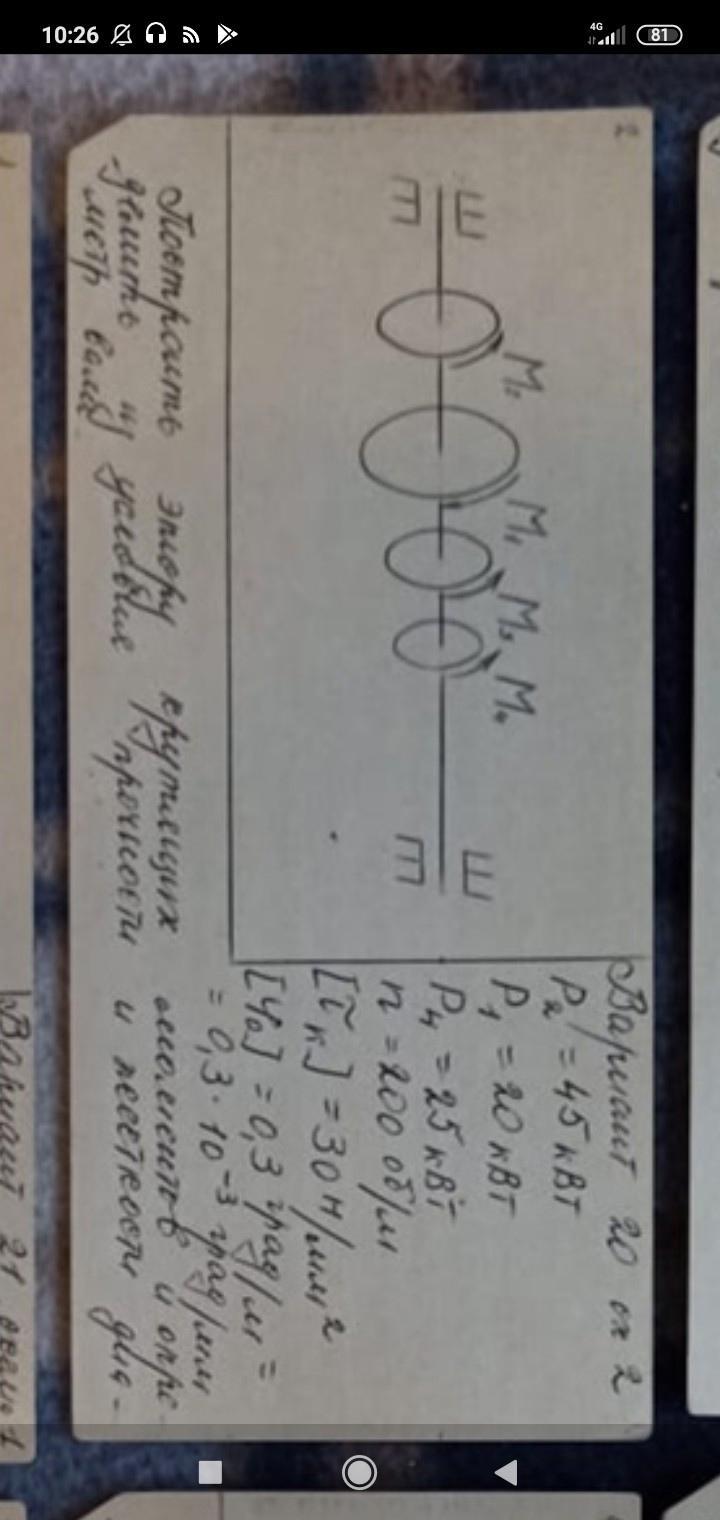 10:26
4G
81
2
Вариант 20 сх 2
M₂
M₁
M₃
M₄
P₂ = 45 кВт
P₁ = 20 кВт
P₄ = 25 кВт
n = 200 об/м
[τк] = 30 н/мм²
[φ₀] = 0,3 град/м =
= 0,3 · 10⁻³ град/мм
Построить эпюру крутящих моментов и опре-
-делить из условие прочности и жесткости диа-
метр вала
Вариант 21